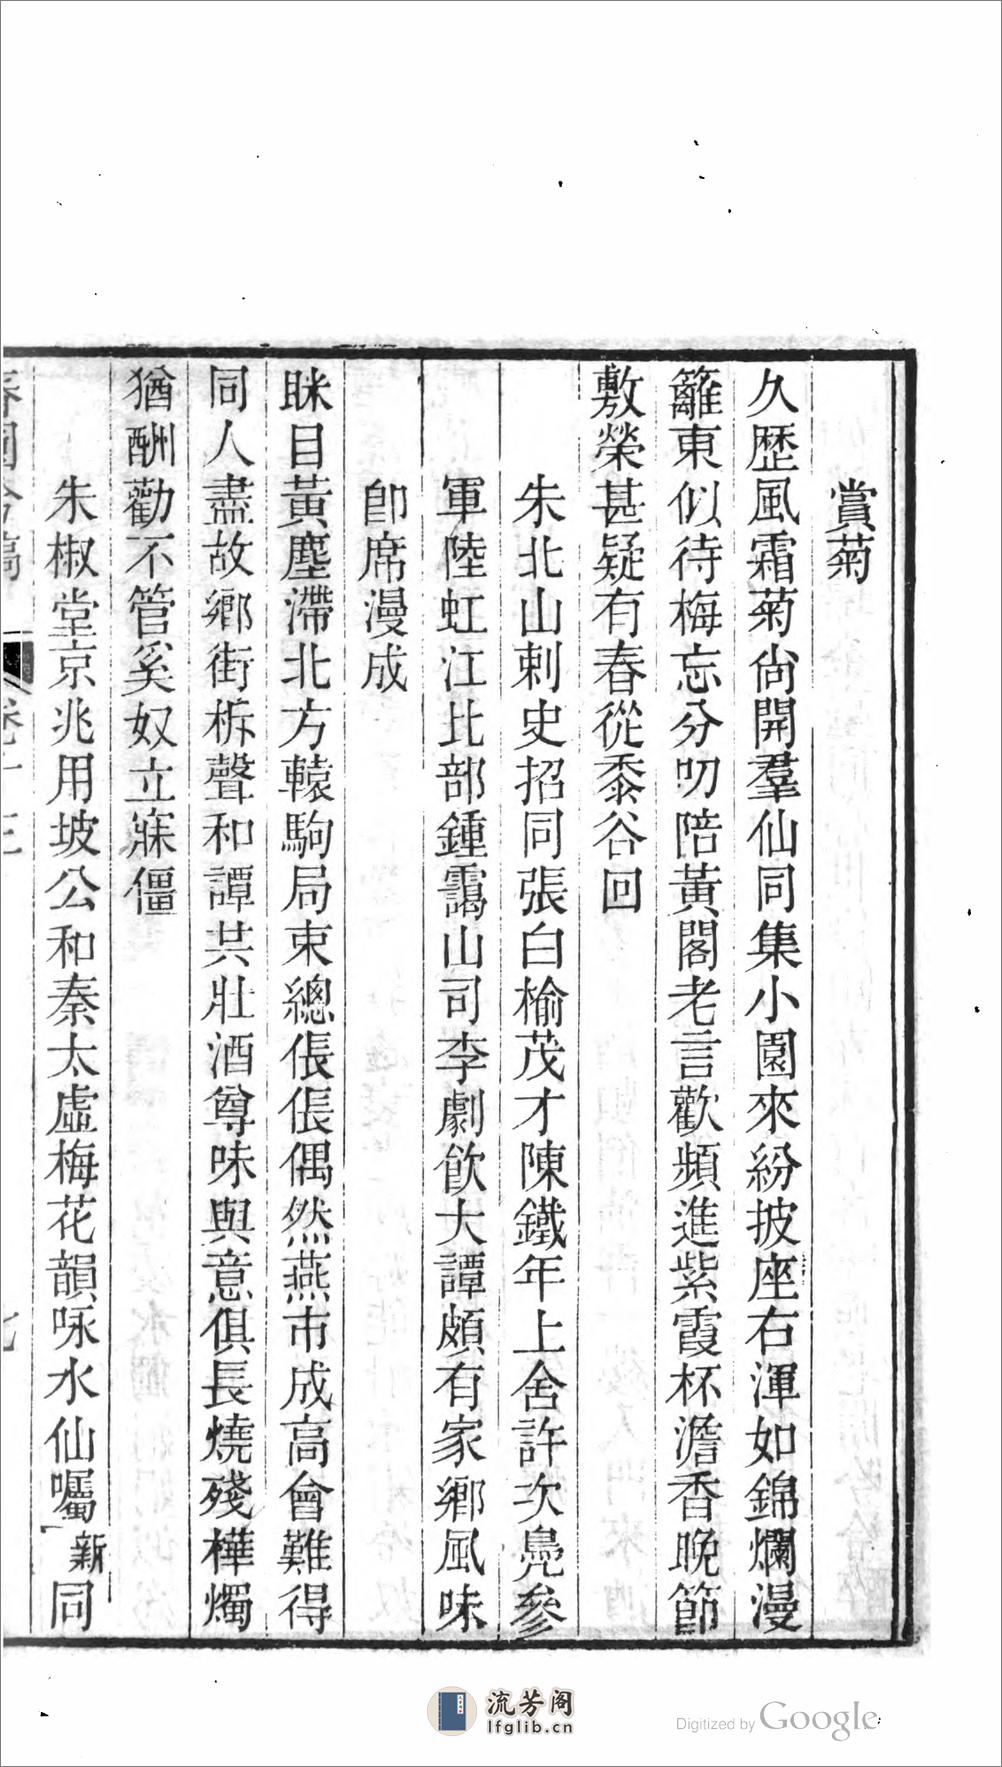 賞菊
久歷風霜菊尙開羣仙同集小園來紛披座右渾如錦爛漫
籬東似待梅忘分叨陪黃閣老言歡頻進紫霞杯澹香晚節
敷榮甚疑有春從黍谷回
朱北山刺史招同張白榆茂才陳鐵年上舍許次鳧參
軍陸虹江比部鍾靄山司李劇飮大譚頗有家鄉風味
卽席漫成
眯目黃塵滯北方轅駒局束總倀倀偶然燕市成高會難得
同人盡故鄉街柝聲和譚共壯酒尊味與意俱長燒殘樺燭
猶酬勸不管奚奴立寐僵
朱椒堂京兆用坡公和秦太虛梅花韻咏水仙囑新同
卷十三
流芳阁
lfglib.cn
Digitized by Google